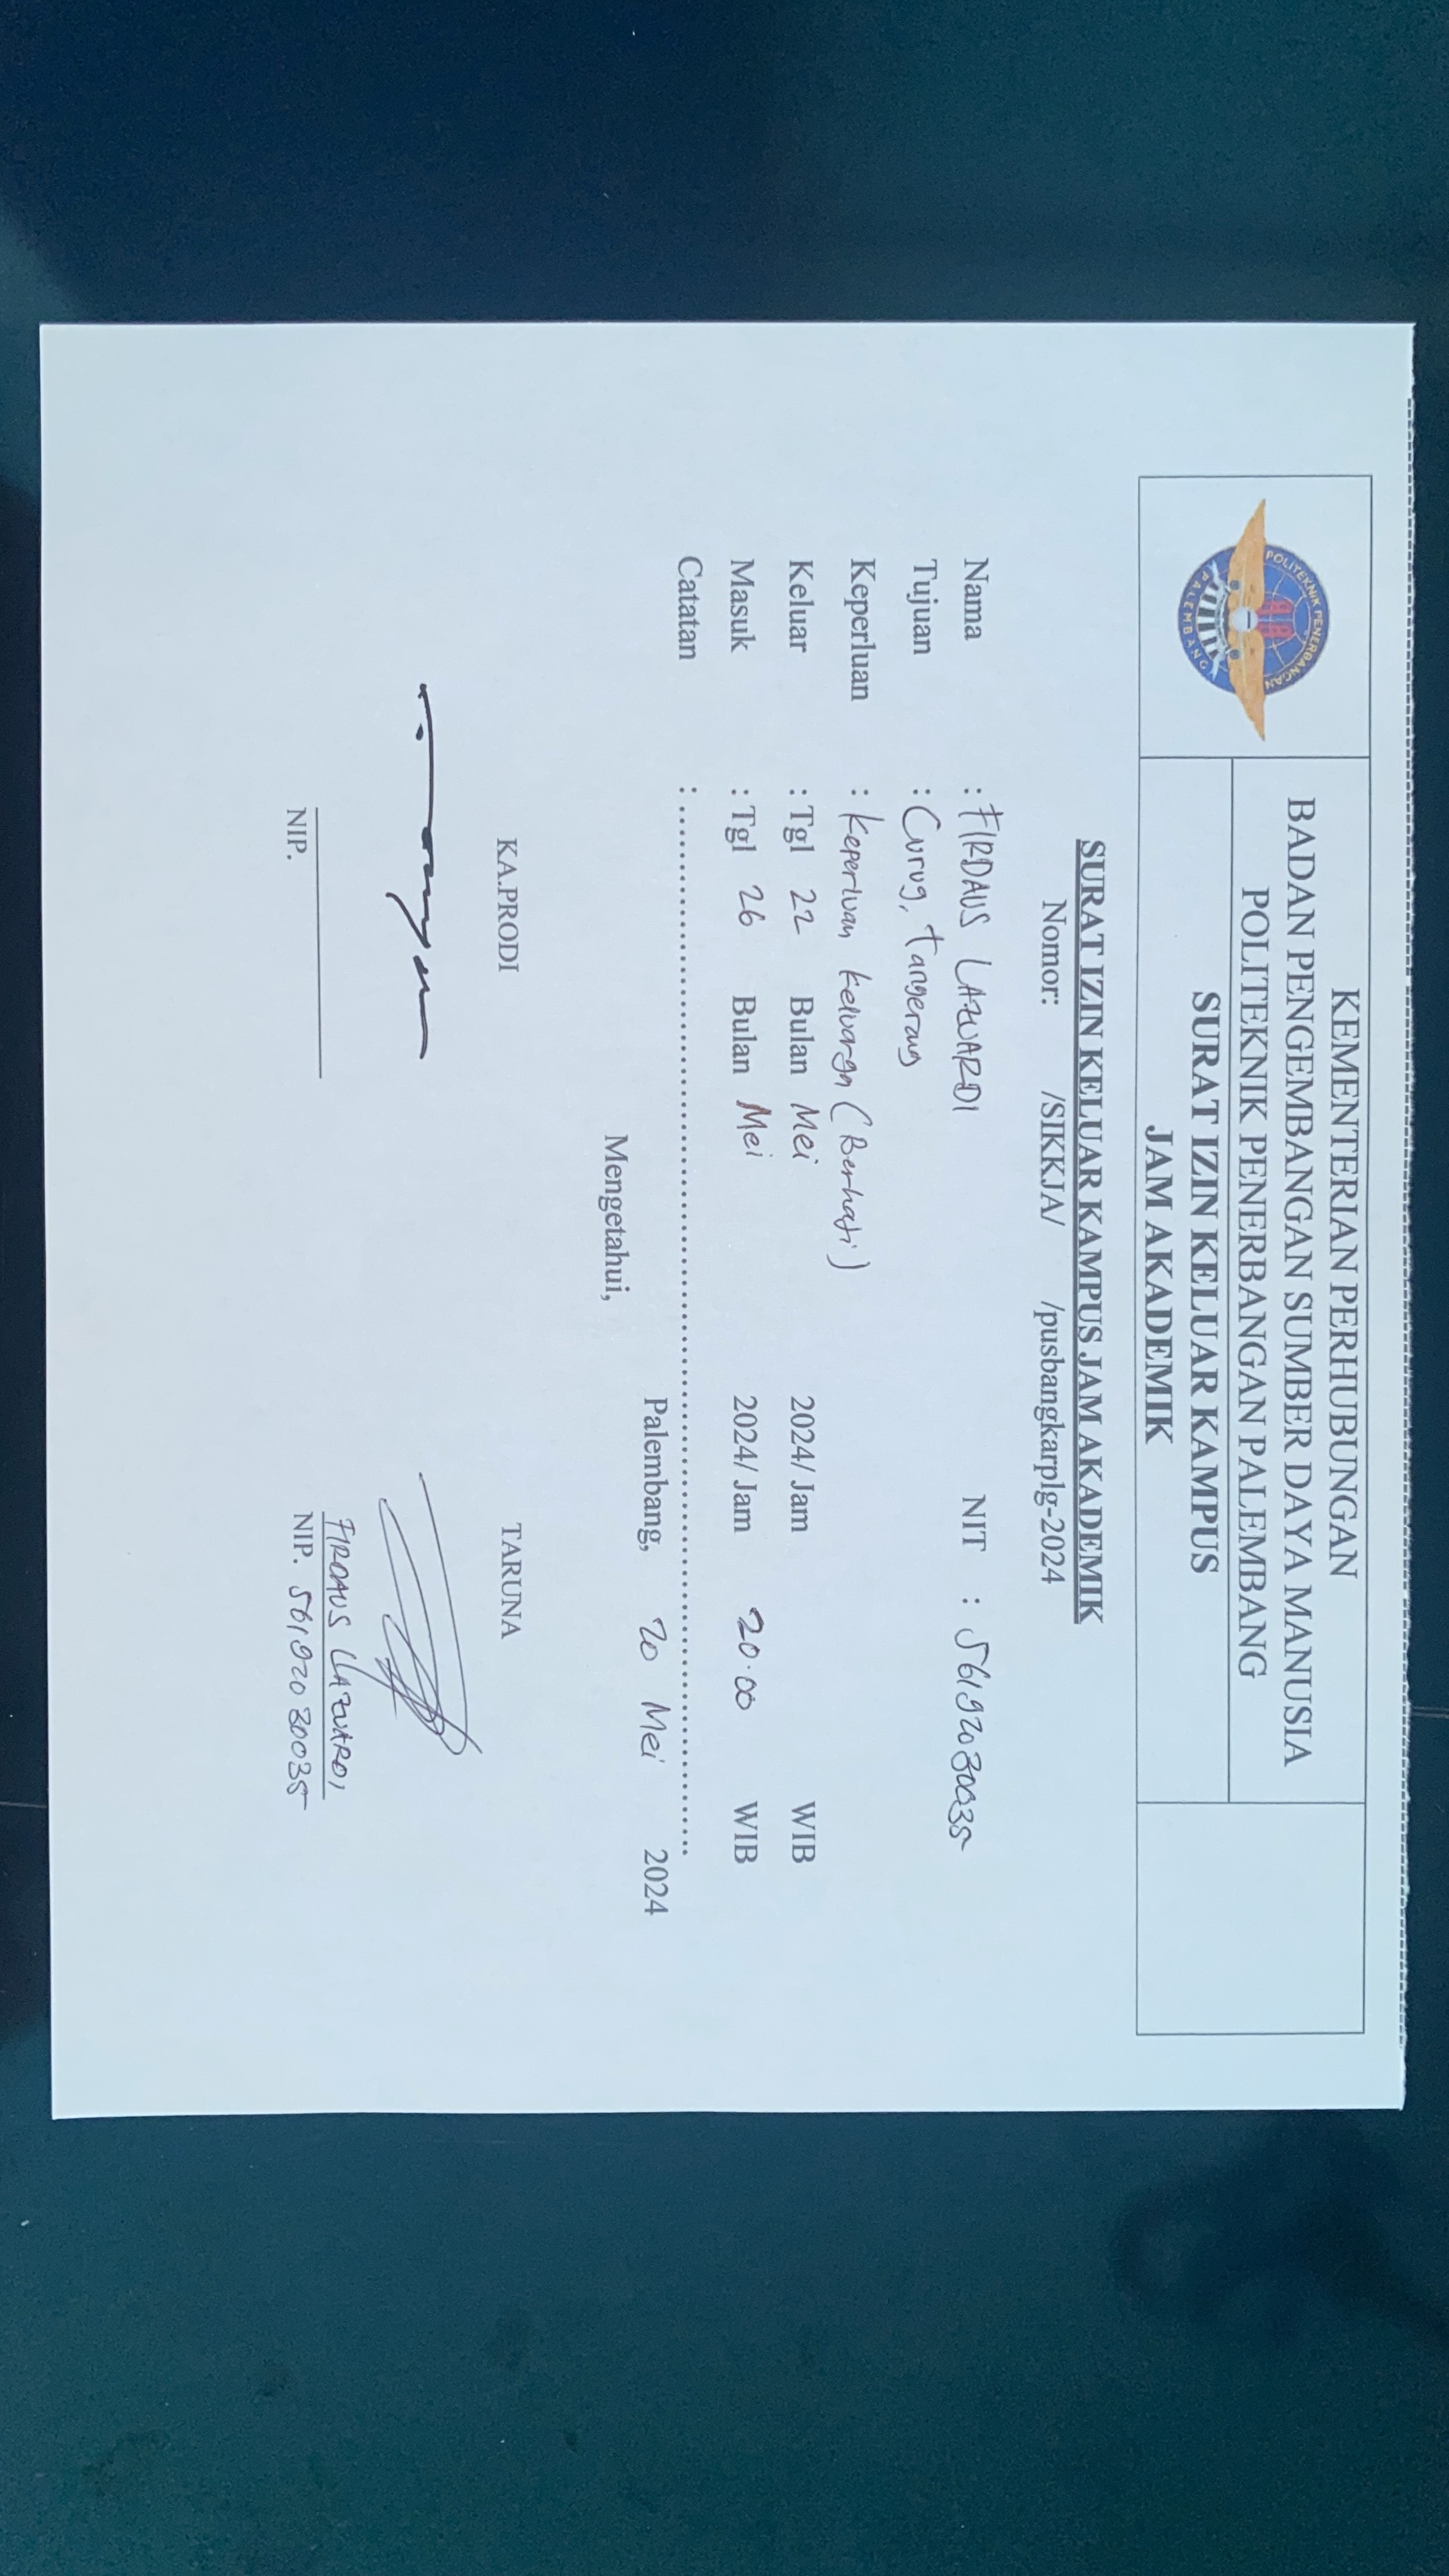 POLITEKNIK PENERBANGAN
PALEMBANG
KEMENTERIAN PERHUBUNGAN
BADAN PENGEMBANGAN SUMBER DAYA MANUSIA
POLITEKNIK PENERBANGAN PALEMBANG
SURAT IZIN KELUAR KAMPUS
JAM AKADEMIK
SURAT IZIN KELUAR KAMPUS JAM AKADEMIK
Nomor: /SIKKJA/ /pusbangkarplg-2024
Nama : FIRDAUS LAZUARDI NIT : 56192030035
Tujuan : Curug, Tangerang
Keperluan : Keperluan keluarga (Berhaji)
Keluar : Tgl 22 Bulan Mei 2024/ Jam WIB
Masuk : Tgl 26 Bulan Mei 2024/ Jam 20.00 WIB
Catatan : ..........................................................................................
Palembang, 20 Mei 2024
Mengetahui,
KA.PRODI TARUNA
FIRDAUS LAZUARDI
NIP. NIP. 56192030035